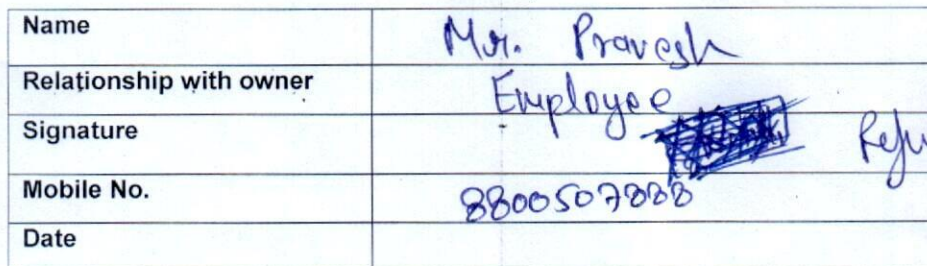 Name Mr. Pravesh
Relationship with owner Employee
Signature
Mobile No. 8800507888
Date